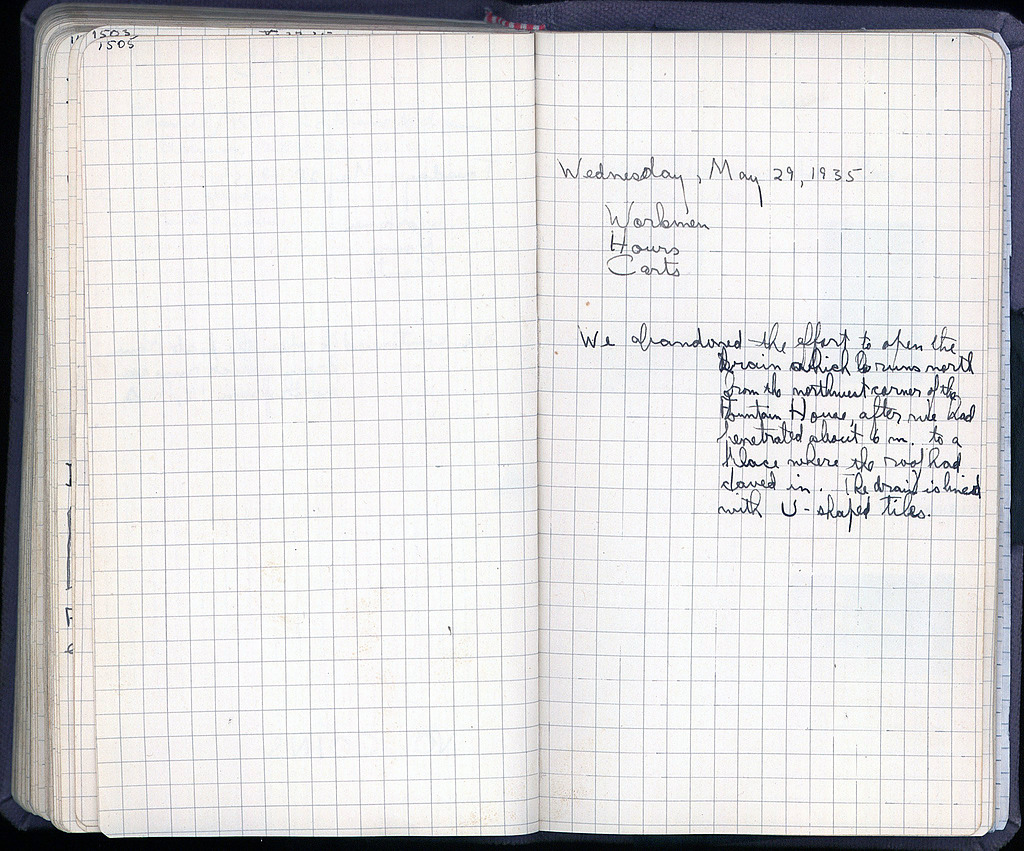 1505
1505
Wednesday, May 29, 1935
Workmen
Hours
Carts
We abandoned the effort to open the
drain which runs north
from the northwest corner of the
Fountain House, after we had
penetrated about 6 m. to a
place where the roof had
caved in. The drain is lined
with U-shaped tiles.